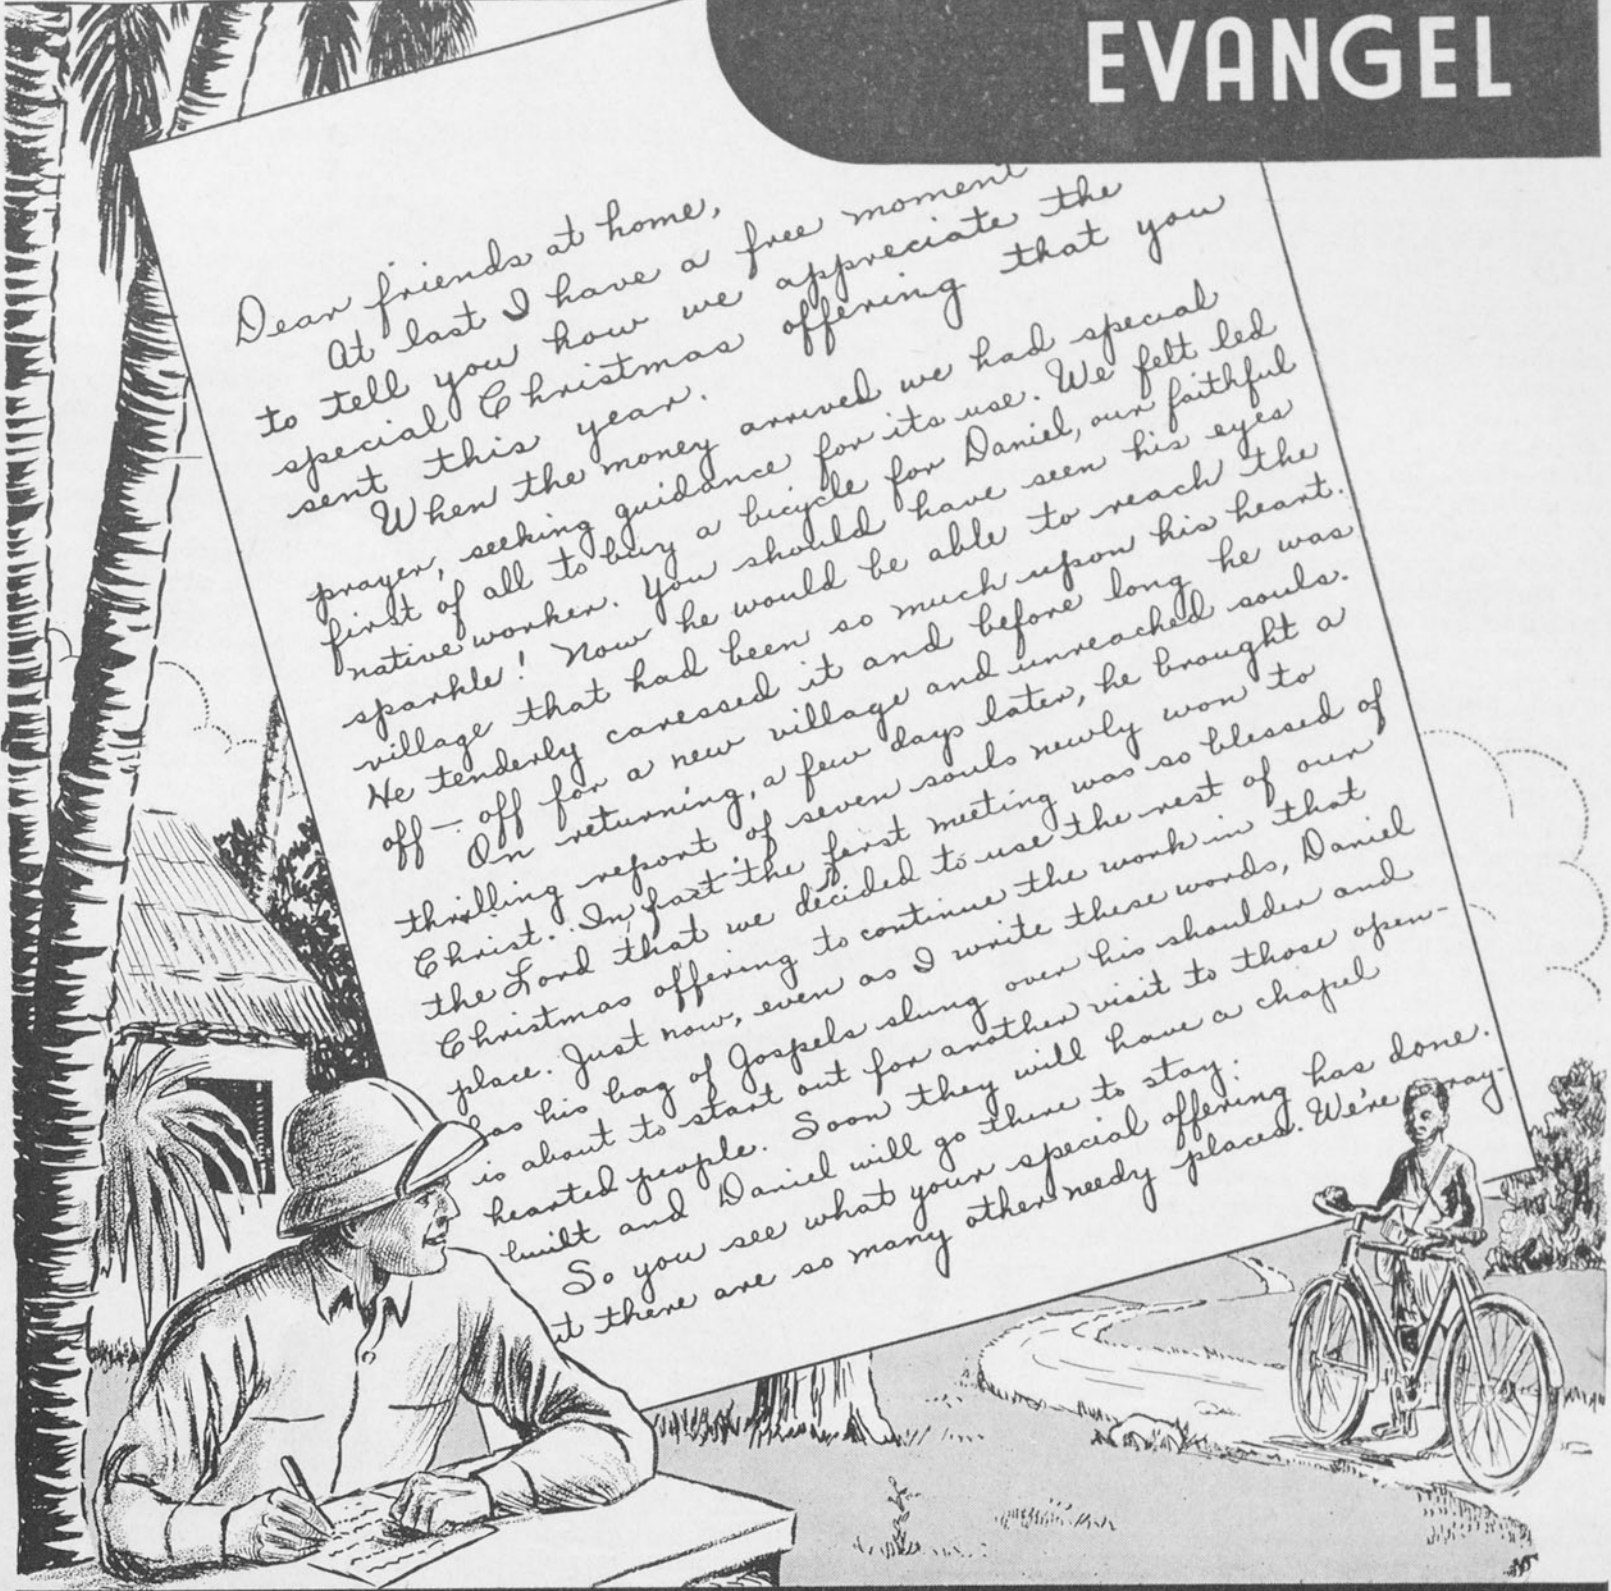 EVANGEL
Dear friends at home,
At last I have a free moment
to tell you how we appreciate the
special Christmas offering that you
sent this year.
When the money arrived we had special
prayer, seeking guidance for its use. We felt led
first of all to buy a bicycle for Daniel, our faithful
native worker. You should have seen his eyes
sparkle! Now he would be able to reach the
village that had been so much upon his heart.
He tenderly caressed it and before long he was
off — off for a new village and unreached souls.
On returning, a few days later, he brought a
thrilling report of seven souls newly won to
Christ. In fact the first meeting was so blessed of
the Lord that we decided to use the rest of our
Christmas offering to continue the work in that
place. Just now, even as I write these words, Daniel
has his bag of Gospels slung over his shoulder and
is about to start out for another visit to those open-
hearted people. Soon they will have a chapel
built and Daniel will go there to stay.
So you see what your special offering has done.
ut there are so many other needy places. We're ray-